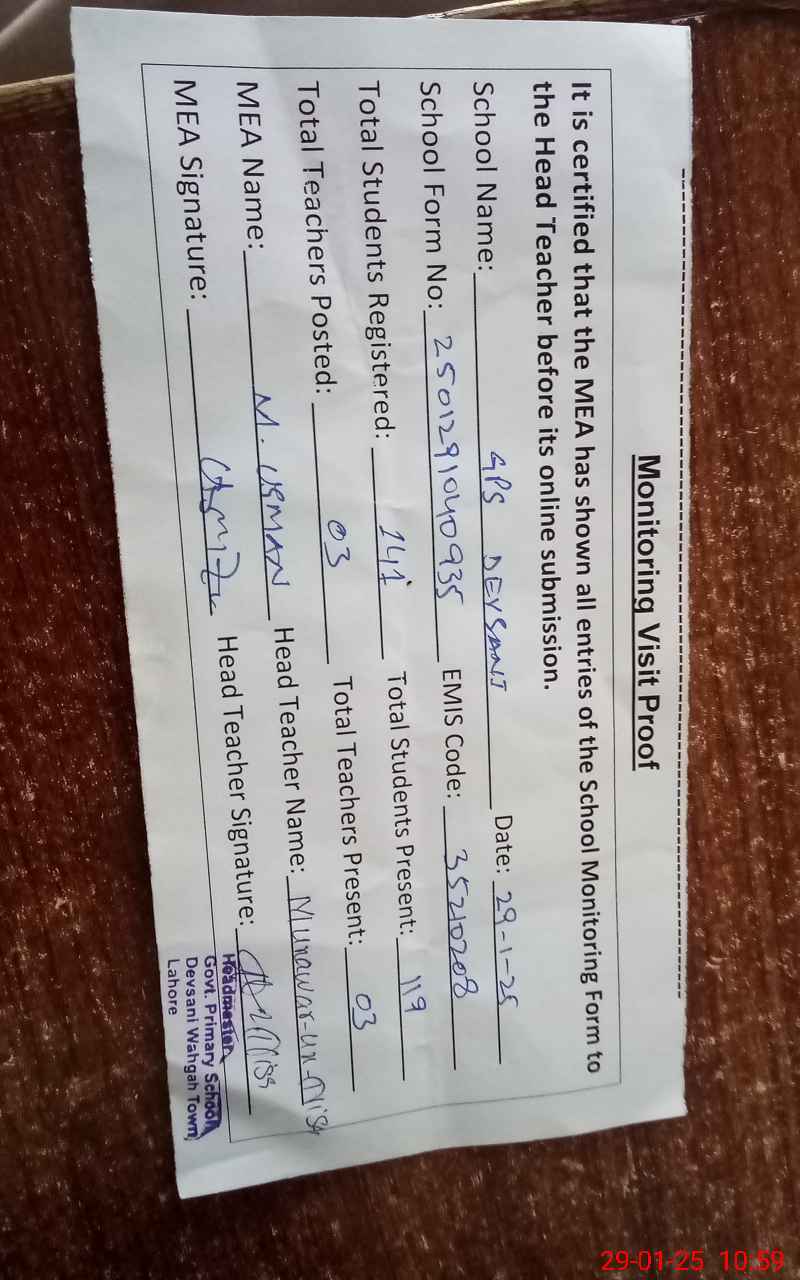 Monitoring Visit Proof
It is certified that the MEA has shown all entries of the School Monitoring Form to
the Head Teacher before its online submission.
School Name: GPS DEVSANI Date: 29-1-25
School Form No: 2501291040935 EMIS Code: 35210208
Total Students Registered: 141 Total Students Present: 119
Total Teachers Posted: 03 Total Teachers Present: 03
MEA Name: M. USMAN Head Teacher Name: Munawar-un-Nisa
MEA Signature: Head Teacher Signature:
Headmaster
Govt. Primary School,
Devsani Wahgah Town,
Lahore
29-01-25 10:59